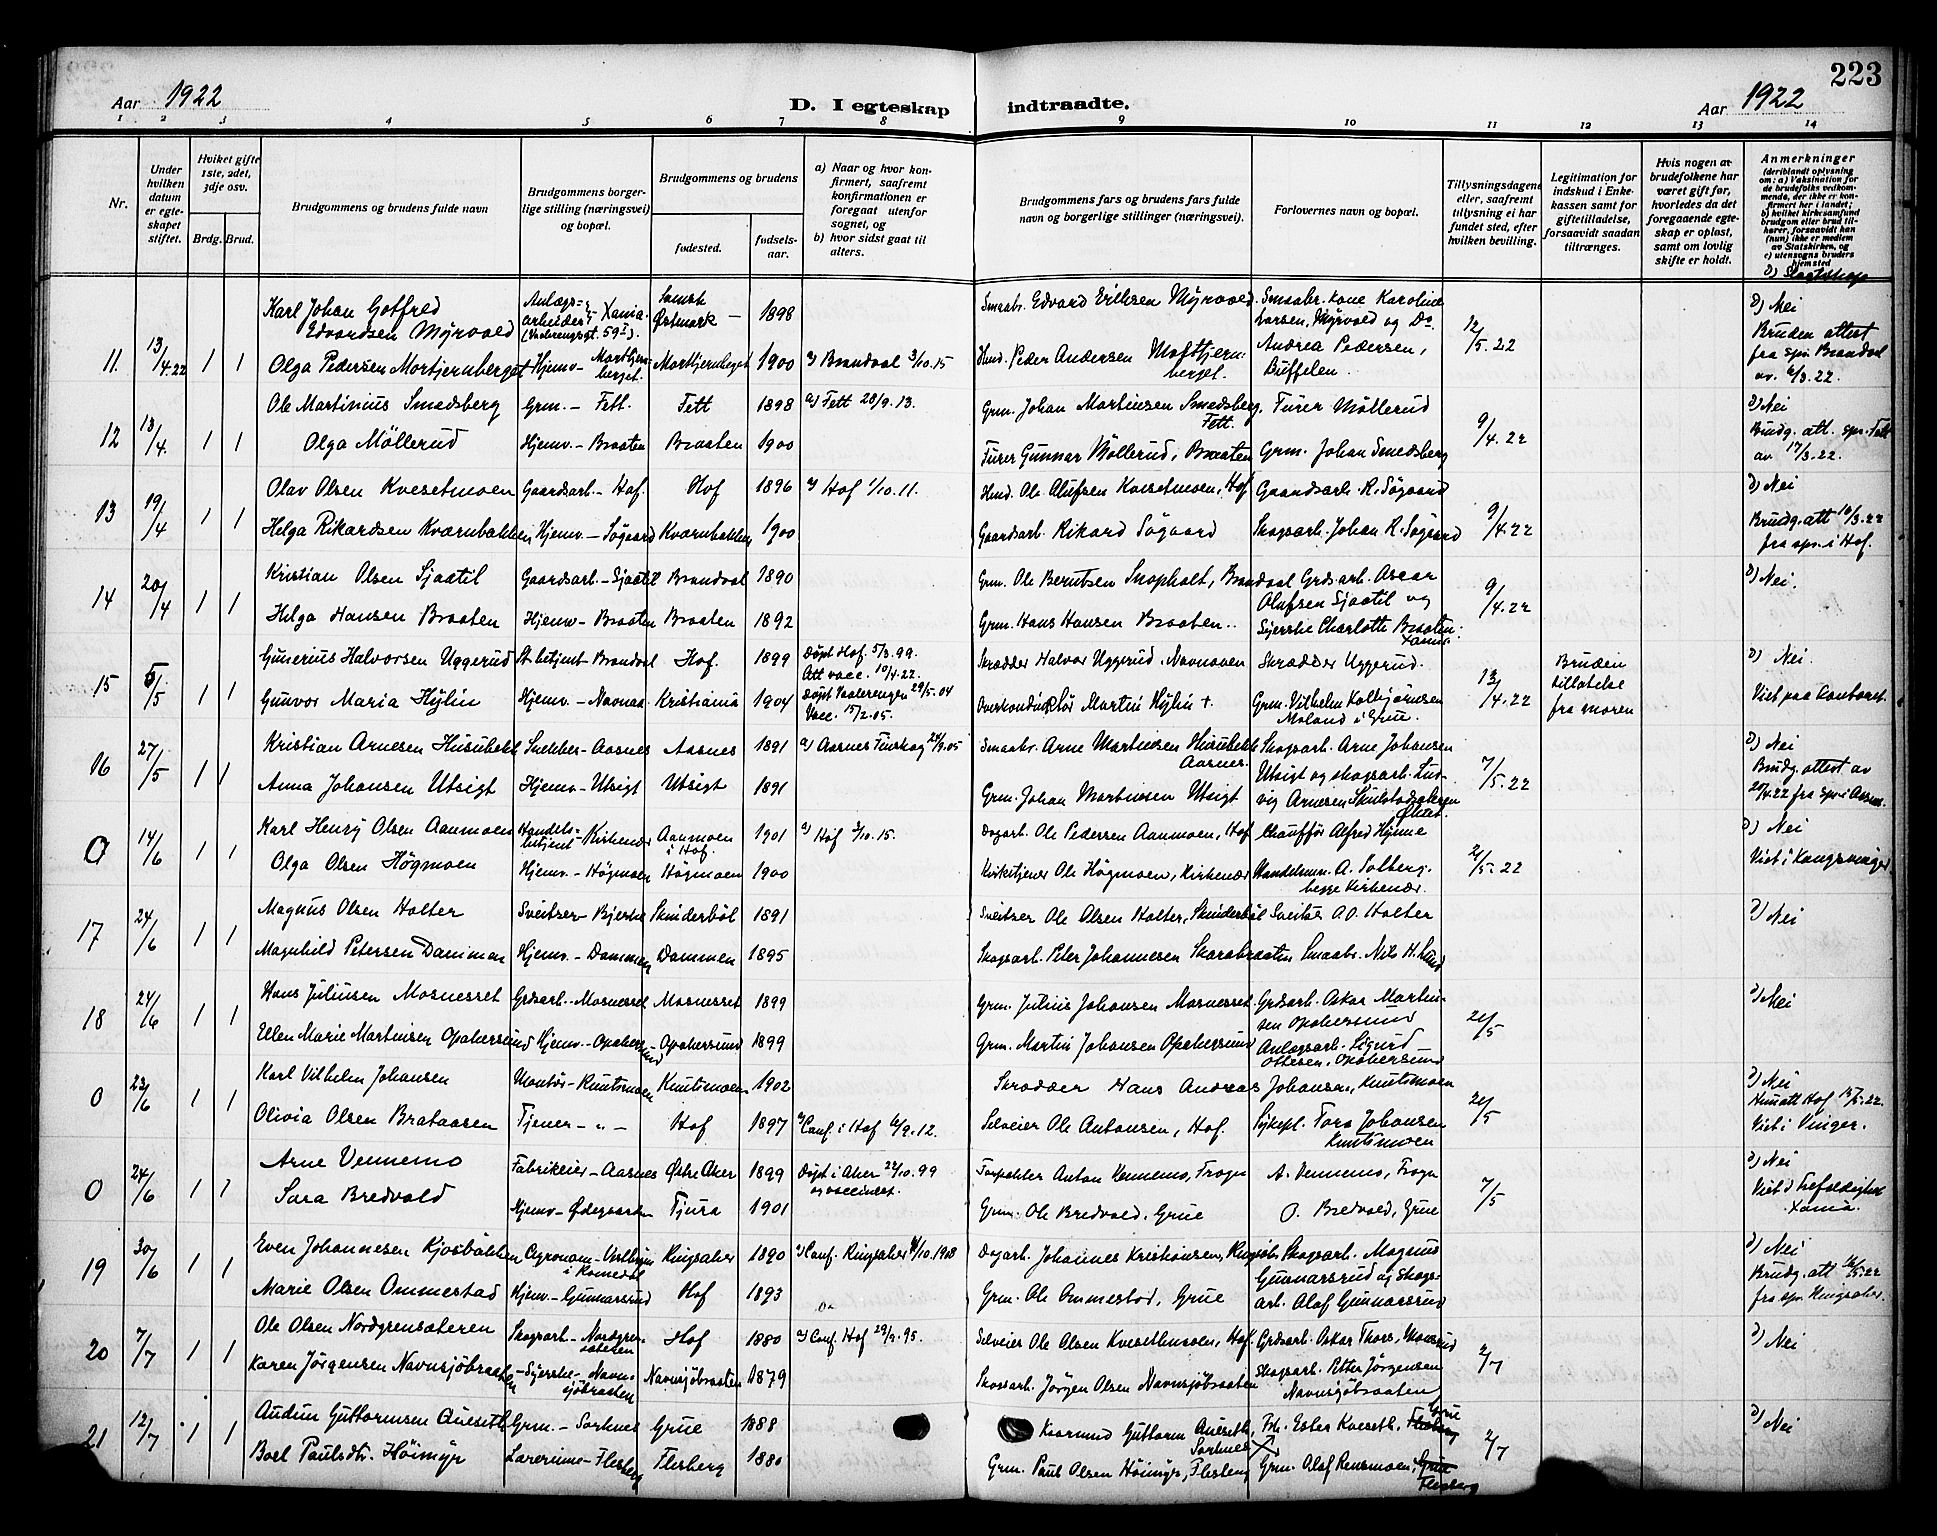 223
Aar 1922
D. I egteskap indtraadte.
Aar 1922
1 2 3 4 5 6 7 8 9 10 11 12 13 14
Nr.
Under hvilken datum er egteskapet stiftet.
Hviket gifte 1ste, 2det, 3dje osv.
Brdg. Brud.
Brudgommens og brudens fulde navn
Brudgommens borgerlige stilling (næringsvei) og bopæl.
Brudgommens og brudens
fødested.
fødselsaar.
a) Naar og hvor konfirmert, saafremt konfirmationen er foregaat utenfor sognet, og
b) hvor sidst gaat til alters.
Brudgommens fars og brudens fars fulde navn og borgerlige stillinger (næringsvei).
Forlovernes navn og bopæl.
Tillysningsdagene eller, saafremt tillysning ei har fundet sted, efter hvilken bevilling.
Legitimation for indskud i Enkekassen samt for giftetilladelse, forsaavidt saadan tiltrænges.
Hvis nogen av brudefolkene har været gift før, hvorledes da det foregaaende egteskap er opløst, samt om lovlig skifte er holdt.
Anmerkninger (deriblandt oplysning om: a) Vaksination for de brudefolks vedkommende, der ikke er konfirmert her i landet; b) hvilket kirkesamfund brudgom eller brud tilhører, forsaavidt han (hun) ikke er medlem av Statskirken, og c) utensogns bruders hjemsted
d) Slegtskap
11. 13/4.22 1 1
Karl Johan Gotfred Edvardsen Myrvold
Anlægsarbeider Xania. (Vaalerengsgt. 59 I).
Østmark
1898
Smaabr. Edvard Eriksen Myrvold
Smaabr. kone Karoline Larsen, Myrvold og Do. Andrea Pedersen, Buffelen.
12/5.22
d) Nei
Bruden attest fra spr. Brandval av. 6/3.22.
Olga Pedersen Mortjernberget
Hjemv - Mortjernberget.
Mortjernberget
1900
a) Brandval 3/10.15
Peder Andersen Mortjernberget.
12 13/4. 1 1
Ole Martinius Smedsberg
Grm. - Fett.
Fett
1898
a) Fett 28/9.13.
Grm. Johan Martinsen Smedsberg, Fett.
Furer Möllerud
9/4.22
d) Nei
Brudg. att. spr. Fett av 17/3.22.
Olga Möllerud
Hjemv. - Braaten
Braaten
1900
Furer Gunnar Möllerud, Braaten
Grm. Johan Smedsberg
13 19/4 1 1
Olav Olsen Kvesetmoen
Gaardsarb. - Hof.
Hof
1896
a) Hof 1/10.11.
Ole Olufsen Kvesetmoen, Hof
Gaardsarb. R. Søgaard
9/4.22
d) Nei
Brudg. att 18/3.22 fra spr. i Hof.
Helga Rikardsen Kværnbakken
Hjemv. - Søgaard
Kværnbakken
1900
Gaardsarb. Rikard Søgaard
Skogsarb. Johan R. Søgaard
14 20/4 1 1
Kristian Olsen Sjaatil
Gaardsarb. - Sjaatil
Brandval
1890
Grm. Ole Berntsen Snopholt, Brandval
Grdsarb. Oscar Olufsen Sjaatil og Syerske Charlotte Braaten. Xania.
9/4.22
d) Nei.
Helga Hansen Braaten
Hjemv - Braaten
Braaten
1892
Grm. Hans Hansen Braaten.
15 5/5 1 1
Gunerius Halvorsen Uggerud
St. betjent - Brandval
Hof.
1899
Døpt Hof. 5/3.99. Att vacc. 10/4.22.
Skrædder Halvor Uggerud. Navnaaen
Skrædder Uggerud.
13/4.22
Bruden tilladelse fra moren
d) Nei.
Viet paa Contoret.
Gunvor Maria Hylin
Hjemv. - Navnaa.
Kristiania
1904
Døpt Vaalerengen 29/5.04 Vacc. 15/2.05.
Overkonduktør Martin Hylin +.
Grm. Vilhelm Kolbjørnsen Moland i Grue.
16 27/5 1 1
Kristian Arnesen Husubekk
Snekker - Aasnes
Aasnes
1891
a) Aasnes Finskog 24/9.05
Smaabr. Arne Martinsen Husubekk Aasnes.
Skogsarb. Arne Johansen Utsigt og skogsarb. Ludvig Arnesen
7/5.22
d) Nei
Brudg. attest av 20/4.22 fra spr. i Aasnes.
Anna Johansen Utsigt
Hjemv - Utsigt
Utsigt
1891
Grm. Johan Martinsen Utsigt
0 14/6 1 1
Karl Henry Olsen Aanmoen
Handelsbetjent - Kirkenær
Aanmoen i Hof
1901
a) Hof 3/10.15.
Dagarb. Ole Pedersen Aanmoen, Hof
Chauffør Alfred Hynne
21/5.22
d) Nei
Viet i Kongsvinger
Olga Olsen Högmoen
Hjemv. - Högmoen
Högmoen
1900
Kirketjener Ole Högmoen, Kirkenær
Handelsm. A. Solberg. begge Kirkenær.
17 24/6 1 1
Magnus Olsen Holter
Sveitser - Bjerke
Skinderböl
1891
Sveitser Ole Olsen Holter, Skinderböl
Sveitser A. O. Holter
d) Nei
Magnhild Petersen Dammen
Hjemv. - Dammen
Dammen
1895
Skogsarb. Peter Johannesen Skarabraaten
Smaabr. Nils H. Lund
18 24/6 1 1
Hans Juliussen Mosnesset
Grdsarb. - Mosnesset
Mosnesset
1899
Grm. Julius Johansen Mosnesset.
Grdsarb. Oskar Martinsen Opakersund
21/5
d) Nei
Ellen Marie Martinsen Opakersund
Hjemv. - Opakersund
Opakersund
1899
Grm. Martin Johansen Opakersund
Anlægsarb. Sigurd Ottesen, Opakersund
0 23/6 1 1
Karl Vilhelm Johansen
Montör - Knutsmoen
Knutsmoen
1902
Skrædder Hans Andreas Johansen, Knutsmoen
21/5
d) Nei
att Hof 15/5.22. Viet i Vinger.
Olivia Olsen Brataasen
Tjener - " -
Hof
1897
a) Conf. i Hof 6/9.12.
Selveier Ole Antonsen, Hof.
Sykepl. Tora Johansen Knutsmoen
0 24/6 1 1
Arne Vennemo
Fabrikeier - Aasnes
Østre Aker
1899
Døpt i Aker 22/10.99 og vaccineret.
Forpakter Anton Vennemo, Frogn
A. Vennemo, Frogn
7/5
d) Nei
Viet i Trefoldighet Xania.
Sara Bredvold
Hjemv - Ødegaarden
Tjura
1901
Grm. Ole Bredvold, Grue
O. Bredvold, Grue
19 30/6 1 1
Even Johannesen Kjosbakken
Agronom - i Romedal
Ringsaker
1890
a) Conf. Ringsaker 4/10.1908
Dagarb. Johannes Kristiansen, Ringsaker
Skogsarb. Magnus Gunnarsrud og Skogsarb. Olaf Gunnarsrud
d) Nei
Brudg. att 16/5.22 fra spr. Ringsaker.
Marie Olsen Ommestad
Hjemv - Gunnarsrud
Hof
1893
Grm. Ole Ommestad, Grue
20 7/7 1 1
Ole Olsen Nordgrensæteren
Skogsarb. - Nordgrensæteren
Hof
1880
a) Conf. Hof 29/9.95.
Selveier Ole Olsen Kvesetmoen, Hof.
Grdsarb. Oskar Thors, Monsrud
2/7
d) Nei
Karen Jørgensen Navnsjöbraaten
- Syerske - Navnsjöbraaten
Navnsjöbraaten
1879
Skogsarb. Jørgen Olsen Navnsjöbraaten
Skogsarb. Petter Jørgensen Navnsjöbraaten
21 12/7 1 1
Audun Guttormsen Qveseth
Grm. - Sorknes
Grue
1888
Guttorm Qveseth, Sorknes
Frk. Ester Kveseth, Flesberg Grue
2/7
d) Nei
Boel Paulsdtr. Höimyr
Lærerinne - Flesberg
Flesberg
1880
Grm. Paul Olsen Höimyr, Flesberg
Grm. Olaf Rensmoen, Grue Flesberg